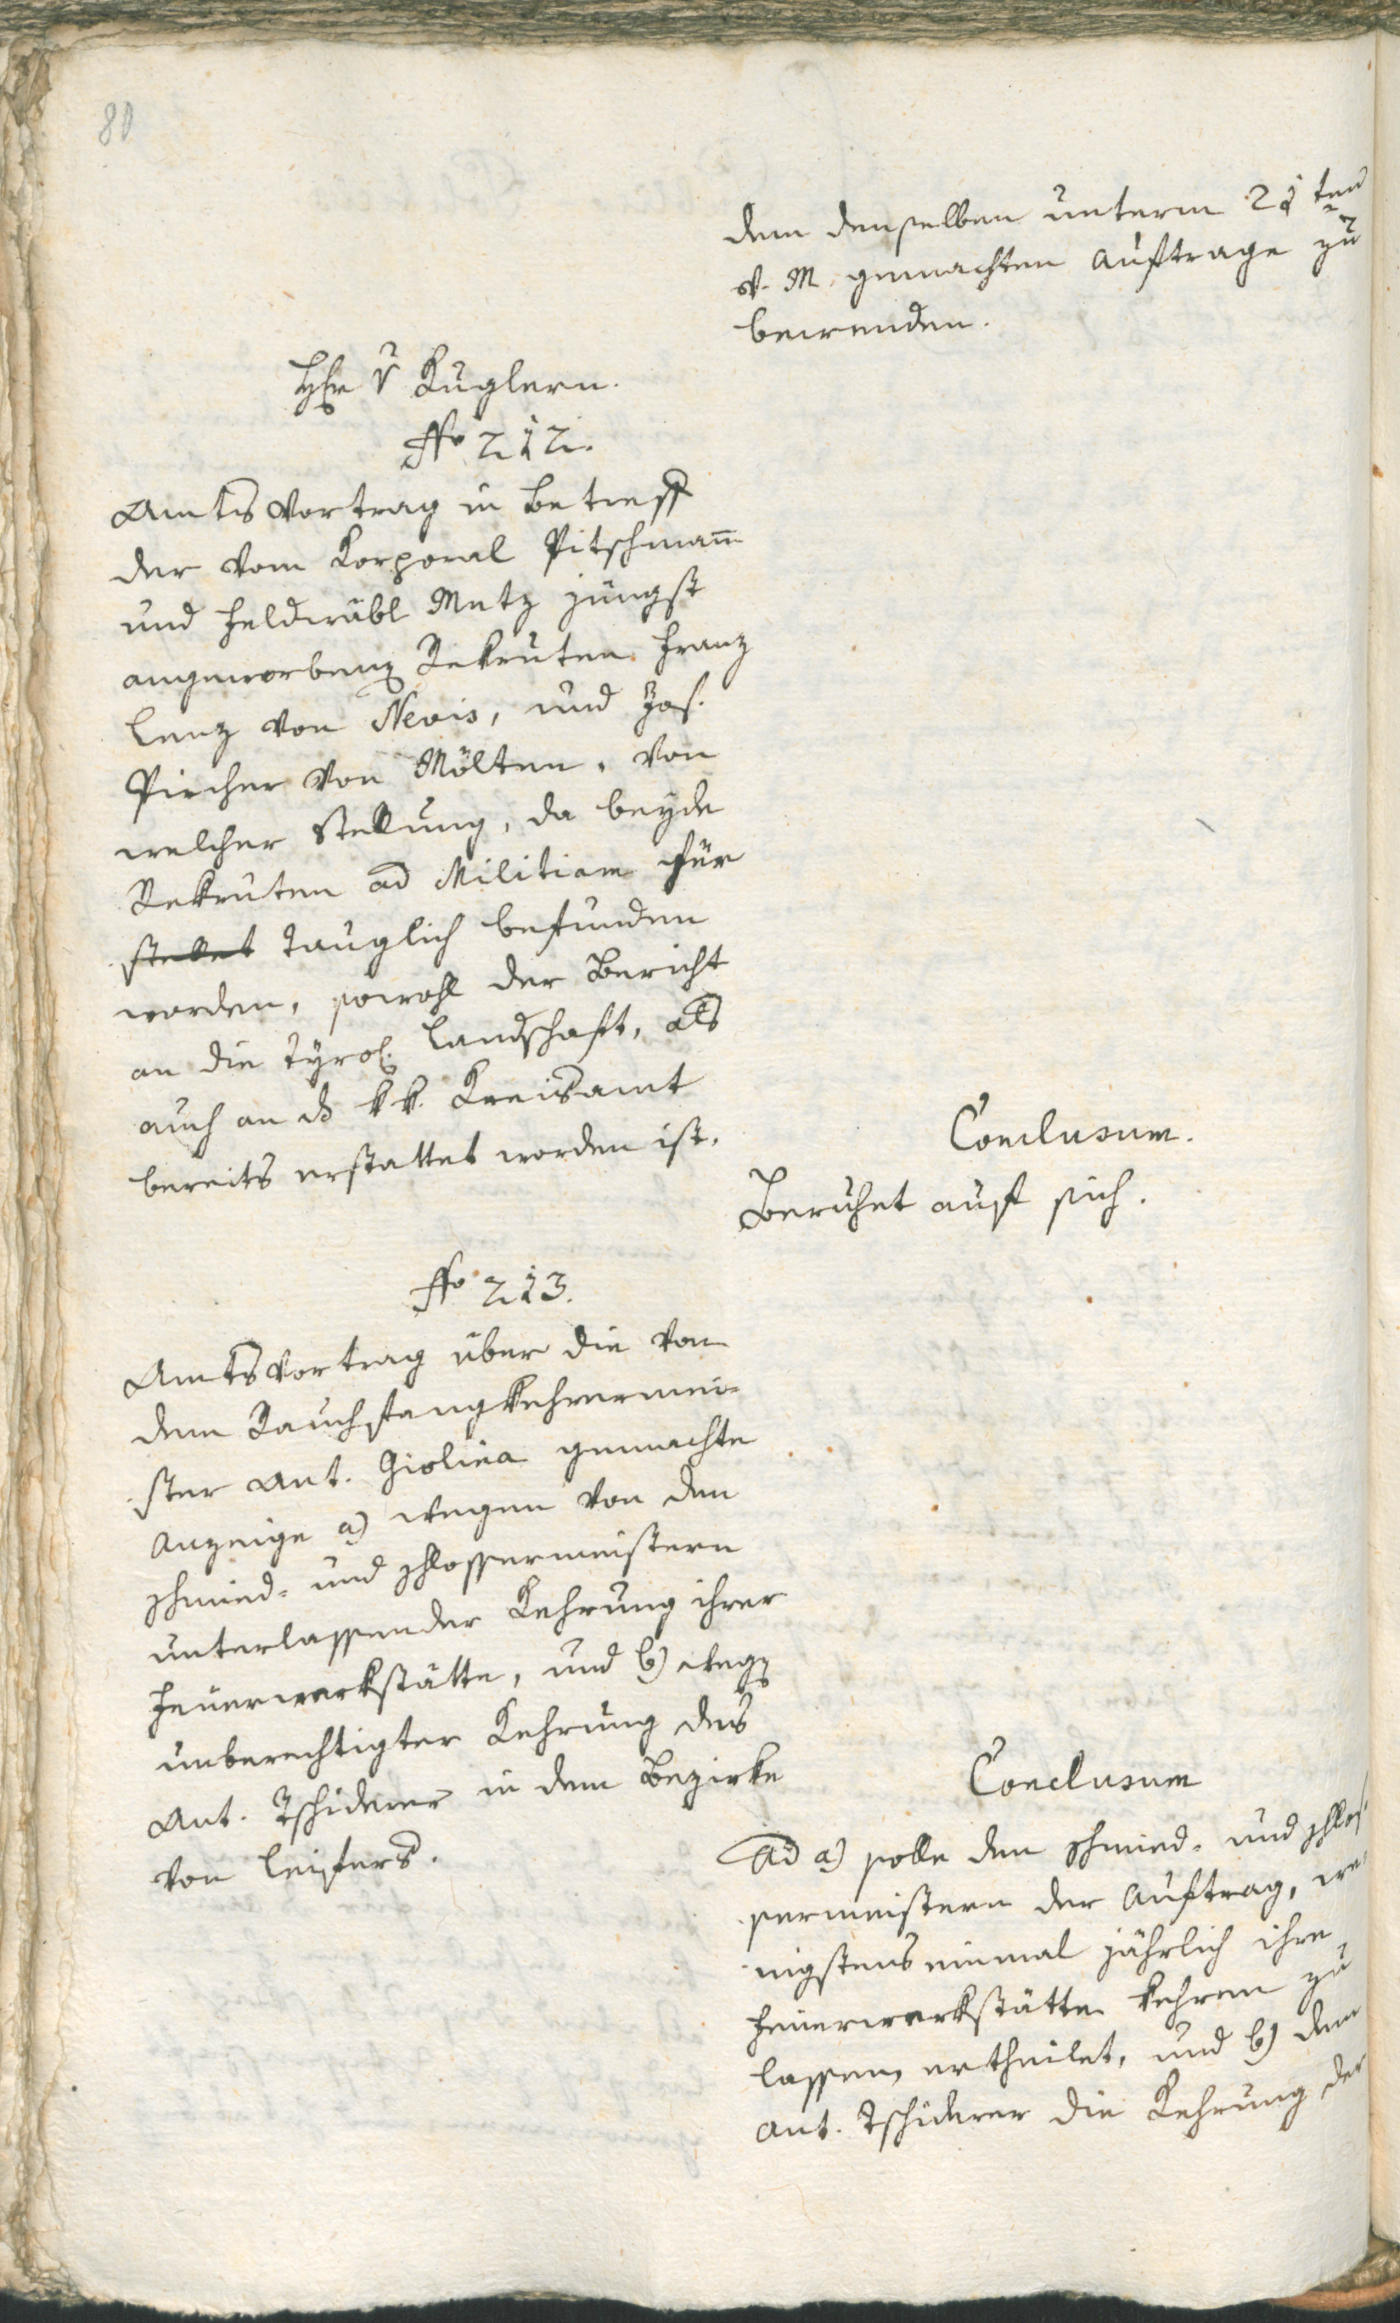 80
dem denselben unterm 21ten
v. M. gemachten Auftrage zu
bewenden.
Hr v Kuglern.
No 212.
Amtsvortrag in Betreff
der vom Korporal Pitschmann
und Feldwäbl Metz jüngst
angeworbenen Rekruten Franz
Lenz von Nevis, und Jos.
Pircher von Mölten, von
welcher Stellung, da beyde
Rekruten ad Militiam für
stellet tauglich befunden
worden, sowohl der Bericht
an die Tyrol. Landschaft, als
auch an das kk. Kreisamt
bereits erstattet worden ist.
Conclusum.
Beruhet auf sich.
No 213.
Amtsvortrag über die von
dem Rauchfangkehrermei-
ster Ant. Giolina gemachte
Anzeige a) wegen von den
Schmied- und Schlossermeistern
unterlassender Kehrung ihrer
Feuerwerkstätte, und b) wegen
unberechtigter Kehrung des
Ant. Tschiderer in dem Bezirke
von Leifers.
Conclusum
Ad a) solle den Schmied- und Schlos-
sermeistern der Auftrag, we-
nigstens einmal jährlich ihre
Feuerwerkstätte kehren zu
lassen, ertheilet, und b) dem
Ant. Tschiderer die Kehrung der